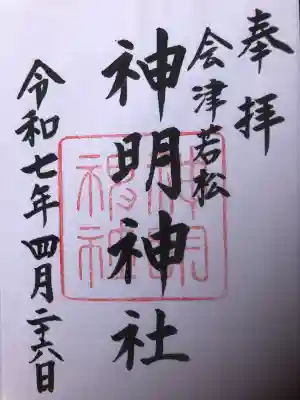 奉拝
会津若松
神明神社
令和七年四月二十六日
神明神社